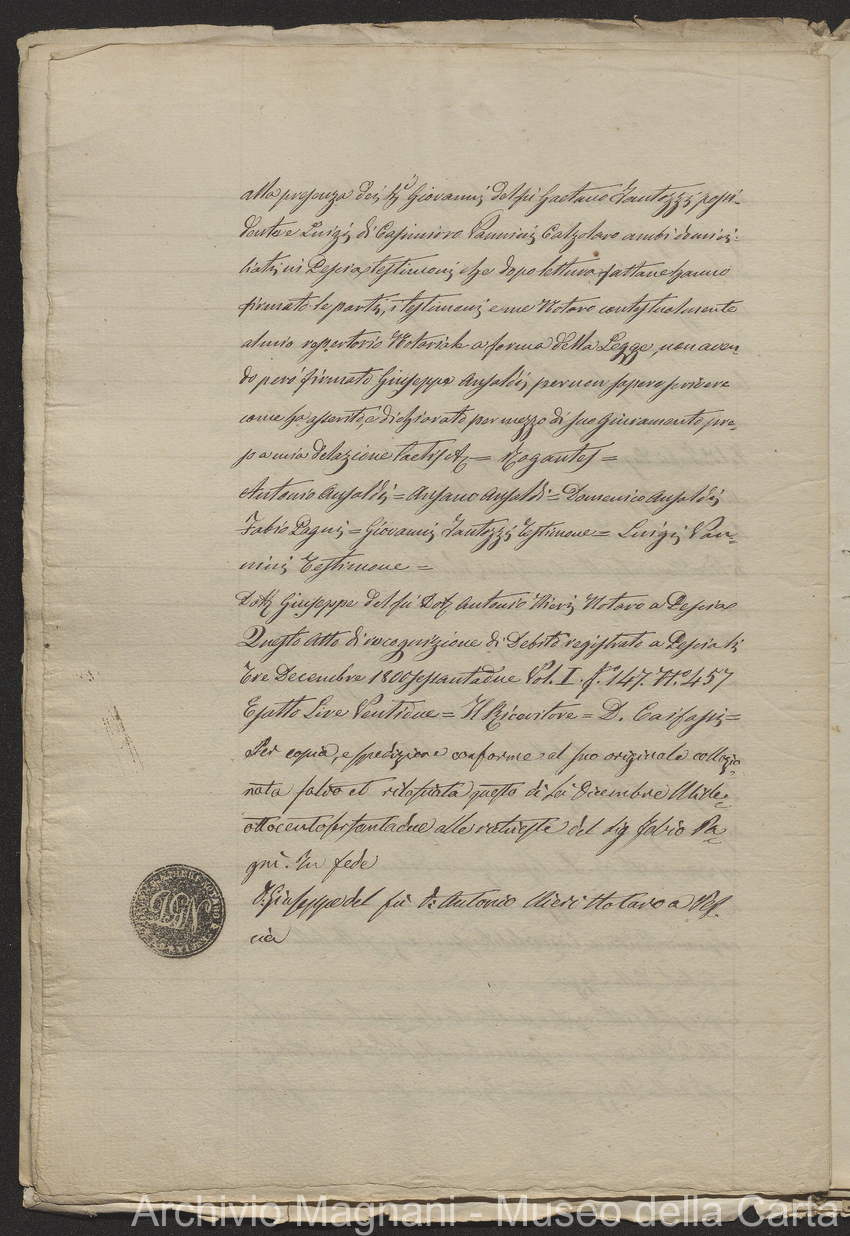 alla presenza dei Sig.i Giovanni del fu Gaetano Fantozzi possi-
dente e Luigi di Casimiro Vannini Calzolaro ambi domici-
liati in Pescia testimoni che dopo lettura fattane hanno
firmato le parti, i testimoni e me Notaro contestualmente
al mio repertorio Notariale a forma della Legge, non aven-
do però firmato Giuseppe Ansaldi per non sapere scrivere
come ha asserito, e dichiarato per mezzo di suo Giuramento pre-
so a mia delazione tactis &c = Rogantes =
Antonio Ansaldi = Ansano Ansaldi = Domenico Ansaldi
Fabio Pagni = Giovanni Fantozzi Testimone = Luigi Van-
nini Testimone =
Dott. Giuseppe del fu Dott. Antonio Nieri Notaro a Pescia
Questo Atto di recognizione di Debito registrato a Pescia li
Tre Decembre 1800sessantadue Vol. I. f.o 147. N.o 457
Esatto Lire Ventidue = Il Ricevitore = D.
Per copia, e spedizione conforme al suo originale collazio-
nata salvo et rilasciata questo dì sei Dicembre Mille-
ottocentosessantadue alle richieste del sig. Fabio Pa-
gni. In fede
D. Giuseppe del fu D. Antonio Nieri Notaro a Pes-
cia
DGN
Archivio Magnani - Museo della Carta